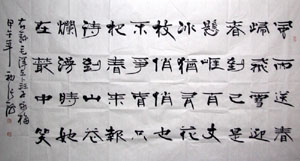 風雨送春
歸飛雪迎
春到已是
懸崖百丈
冰猶有花
枝俏俏也
不爭春只
把春來報
待到山花
爛漫時她
在叢中笑
右錄毛澤東卜算子詠梅
甲午年